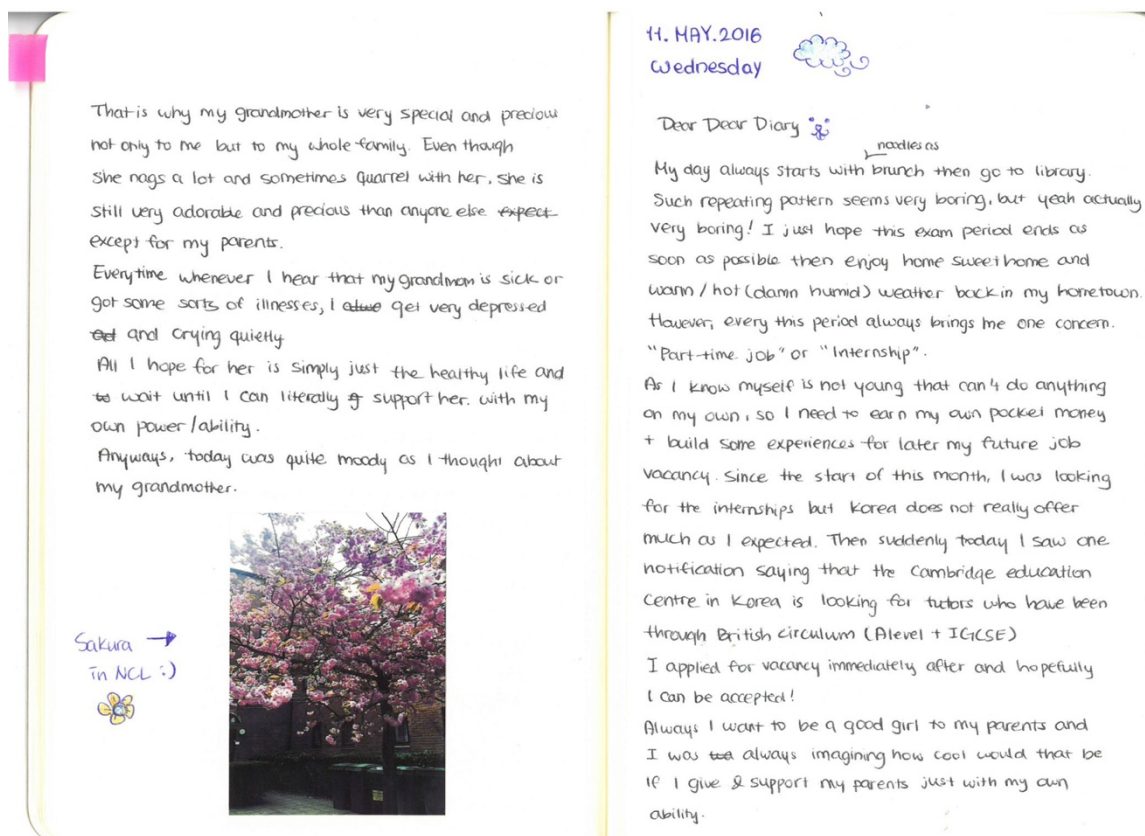 That is why my grandmother is very special and precious
not only to me but to my whole family. Even though
she nags a lot and sometimes quarrel with her, she is
still very adorable and precious than anyone else expect
except for my parents.
Everytime whenever I hear that my grandmom is sick or
got some sorts of illnesses, I get very depressed
and crying quietly
All I hope for her is simply just the healthy life and
to wait until I can literally support her. with my
own power/ability.
Anyways, today was quite moody as I thought about
my grandmother.
Sakura →
in NCL :)
11. MAY. 2016
Wednesday
Dear Dear Diary
noodles as
My day always starts with brunch then go to library.
Such repeating pattern seems very boring, but yeah actually
very boring! I just hope this exam period ends as
soon as possible then enjoy home sweet home and
warm / hot (damn humid) weather back in my hometown.
However, every this period always brings me one concern.
"Part-time job" or "Internship".
As I know myself is not young that can't do anything
on my own, so I need to earn my own pocket money
+ build some experiences for later my future job
vacancy. Since the start of this month, I was looking
for the internships but Korea does not really offer
much as I expected. Then suddenly today I saw one
notification saying that the Cambridge education
Centre in Korea is looking for tutors who have been
through British circulum (Alevel + IGCSE)
I applied for vacancy immediately after and hopefully
I can be accepted!
Always I want to be a good girl to my parents and
I was always imagining how cool would that be
If I give & support my parents just with my own
ability.